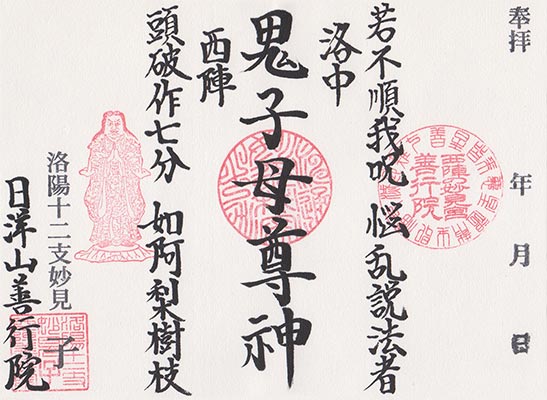 奉拝　年　月　日
若不順我呪　悩乱説法者
洛中
鬼子母尊神
西陣
頭破作七分　如阿梨樹枝
洛陽十二支妙見　子
日洋山善行院
西陣妙見宮
善行院